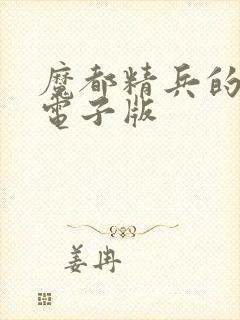 魔都精兵的
電子版
姜冉